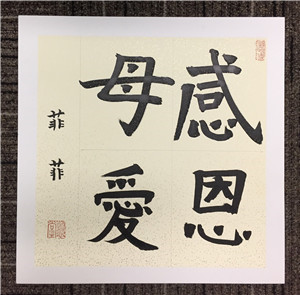 感恩
母愛
菲菲